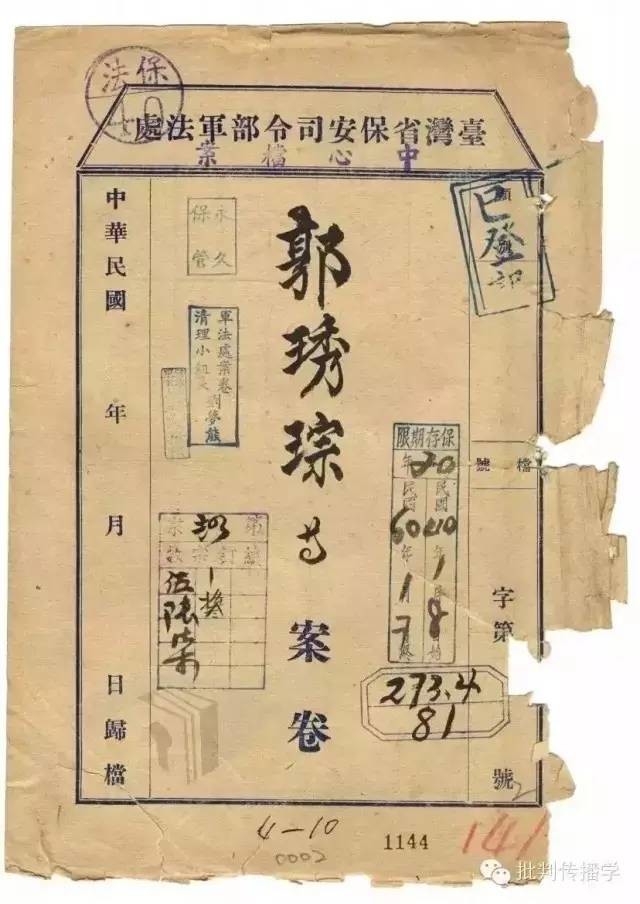 保法
10
臺灣省保安司令部軍法處
中心檔案
已登記
檔號
字第
號
保存期限
20年
民國40年1月8日始
民國60年1月7日終
273.4
81
郭琇琮等案卷
永久
保管
軍法處案卷
清理小組
中華民國 年 月 日歸檔
4-10
0002
1144
141
批判传播学